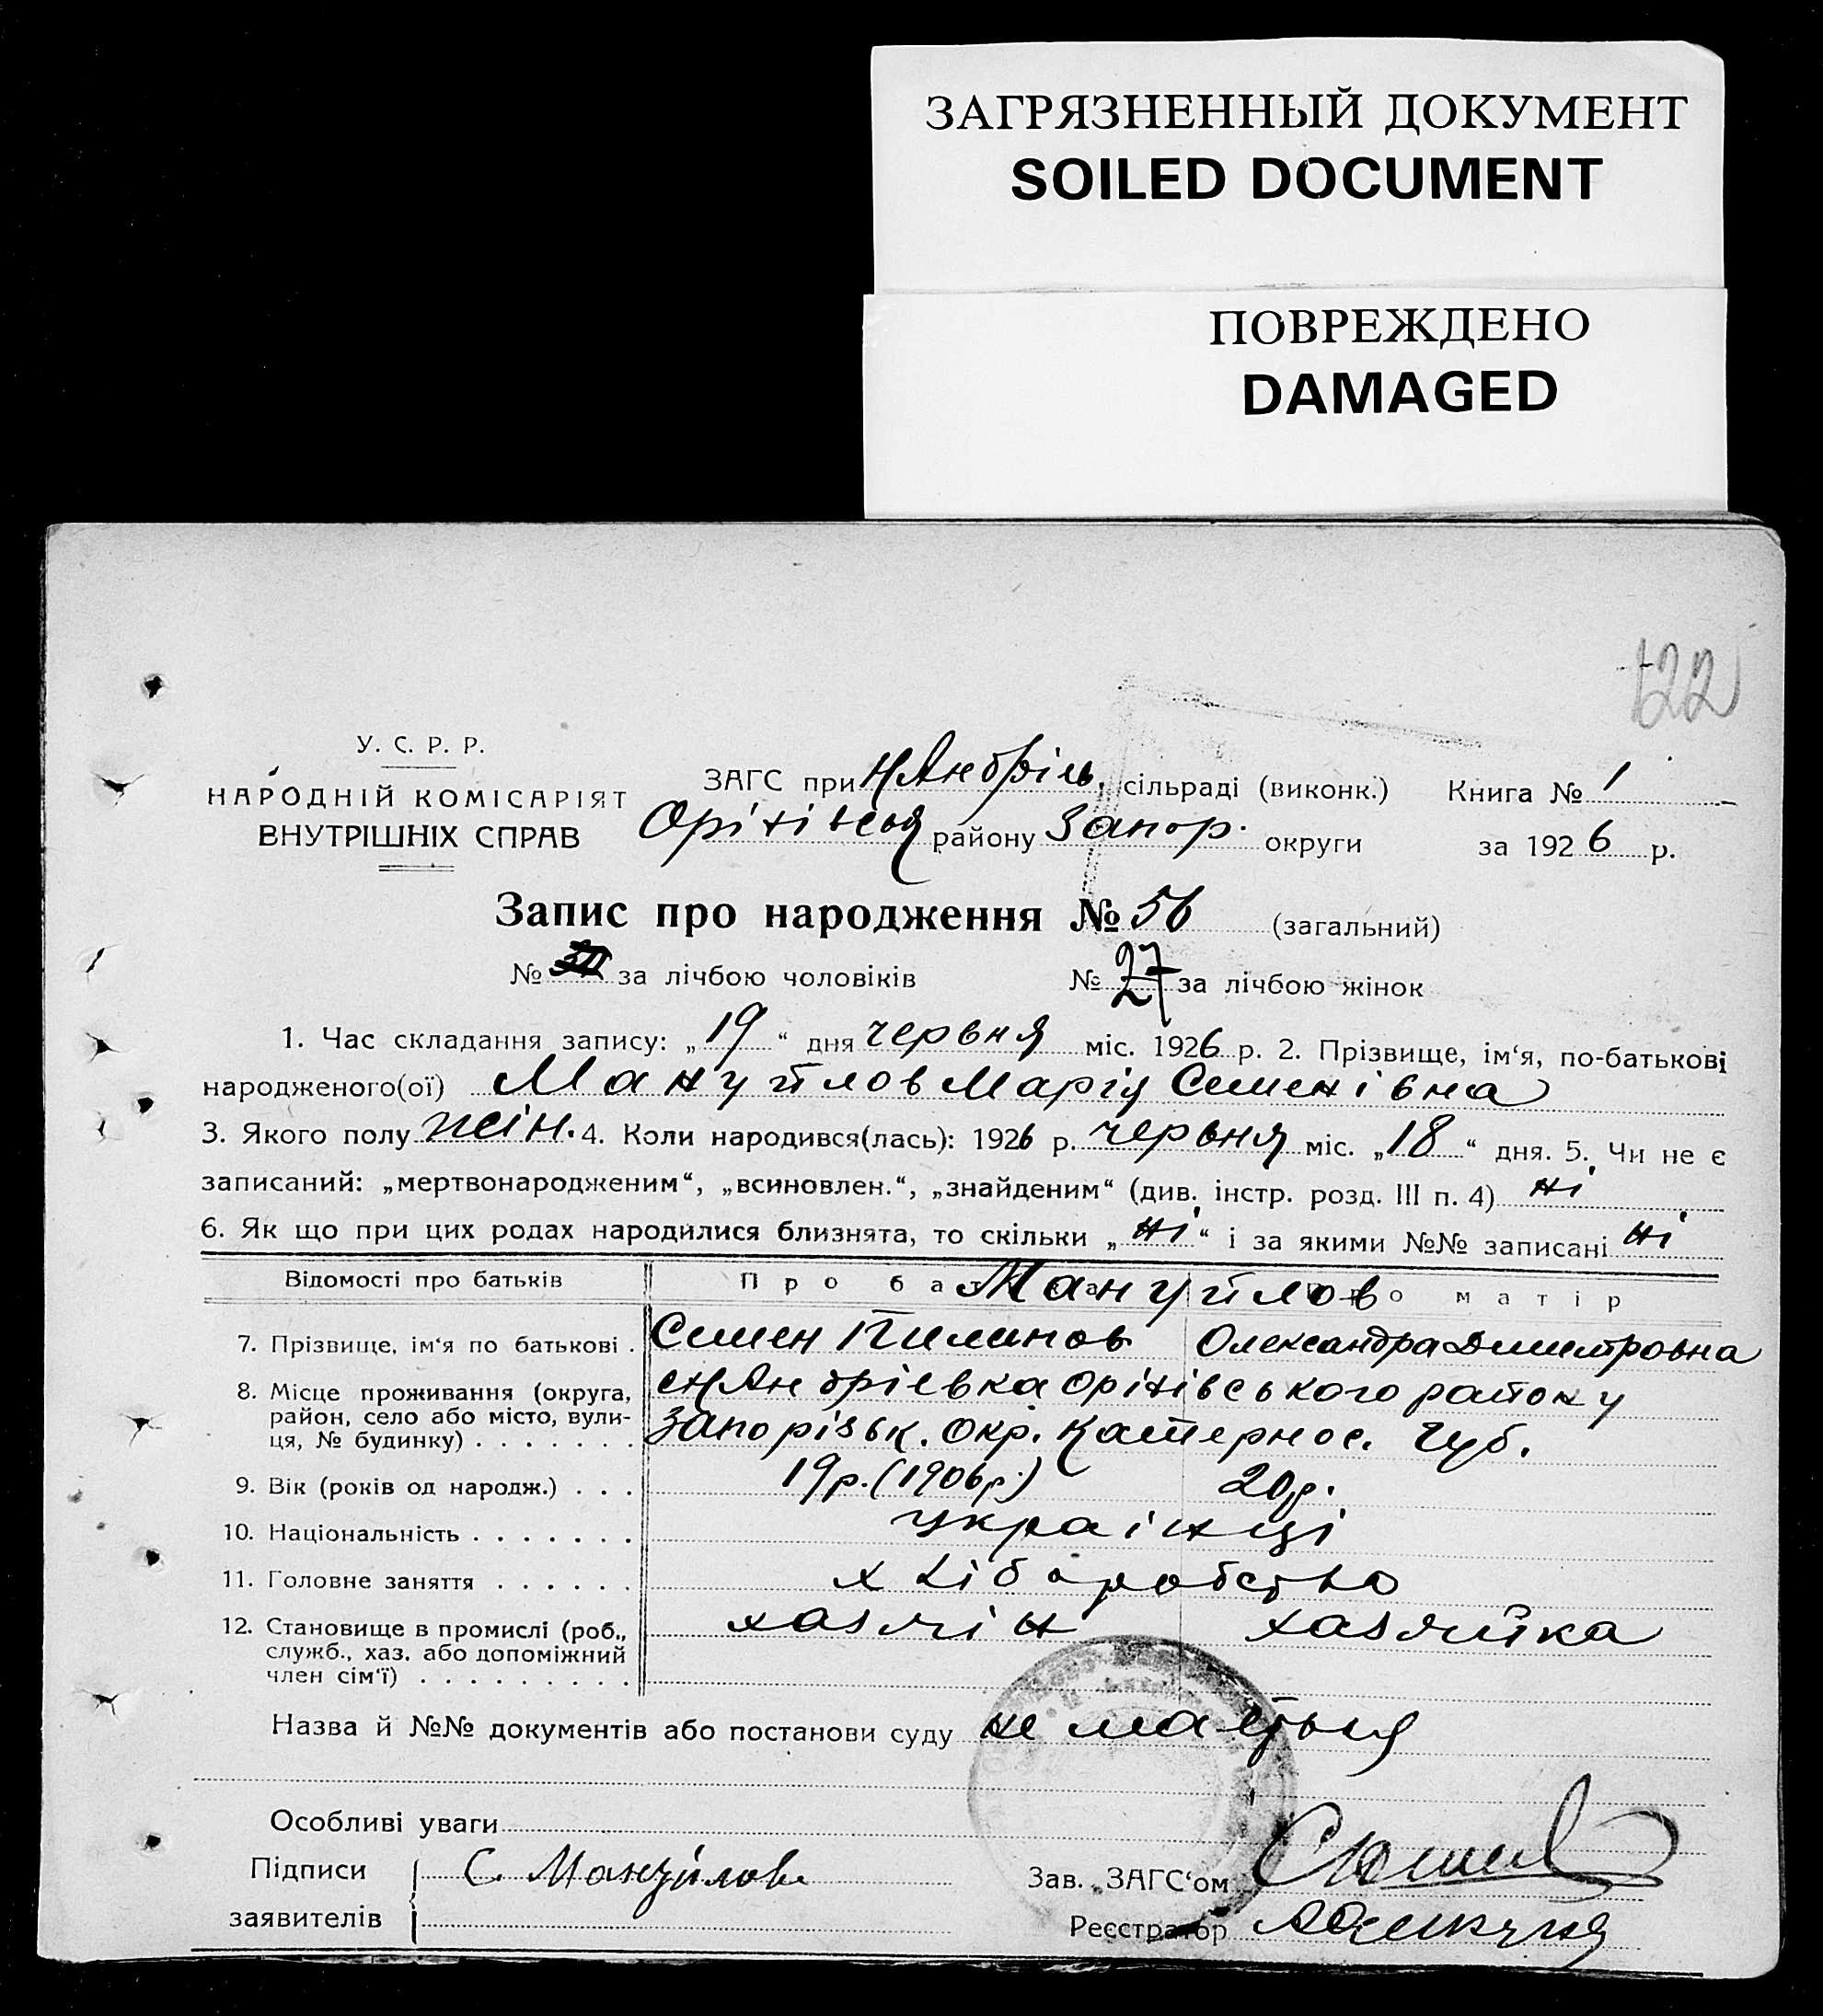 ЗАГРЯЗНЕННЫЙ ДОКУМЕНТ
SOILED DOCUMENT
ПОВРЕЖДЕНО
DAMAGED
122
У. С. Р. Р.
НАРОДНІЙ КОМІСАРІЯТ
ВНУТРІШНІХ СПРАВ
ЗАГС при Н Андріїв. сільраді (виконк.) Книга № 1
Оріхівськ району Запор. округи за 1926 р.
Запис про народження № 56 (загальний)
№ за лічбою чоловіків № 27 за лічбою жінок
1. Час складання запису: „19“ дня червня міс. 1926 р. 2. Прізвище, ім‘я, по-батькові
народженого(ої) Мануйлов Марія Семенівна
3. Якого полу жін. 4. Коли народився(лась): 1926 р. червня міс. „18“ дня. 5. Чи не є
записаний: „мертвонародженим“, „всиновлен.“, „знайденим“ (див. інстр. розд. III п. 4) ні
6. Як що при цих родах народилися близнята, то скільки „ні“ і за якими №№ записані ні
Відомості про батьків Про ба Мануйлов о матір
7. Прізвище, ім‘я по батькові . Семен Пилипов Олександра Димитровна
8. Місце проживання (округа, район, село або місто, вулиця, № будинку) . . . . . . . с Н Андріевка Оріхівського району
Запорізьк. Окр. Катернос. Губ.
9. Вік (років од народж.) . . . 19р. (1906р.) 20р.
10. Національність . . . . . . . українці
11. Головне заняття . . . . . . хліборобство
12. Становище в промислі (роб., служб., хаз. або допоміжний член сім‘ї) . . . . . . . . . хазяїн хазяйка
Назва й №№ документів або постанови суду не мається
Особливі уваги
Підписи заявителів С. Мануйлов
Зав. „ЗАГС‘ом
Реєстратор